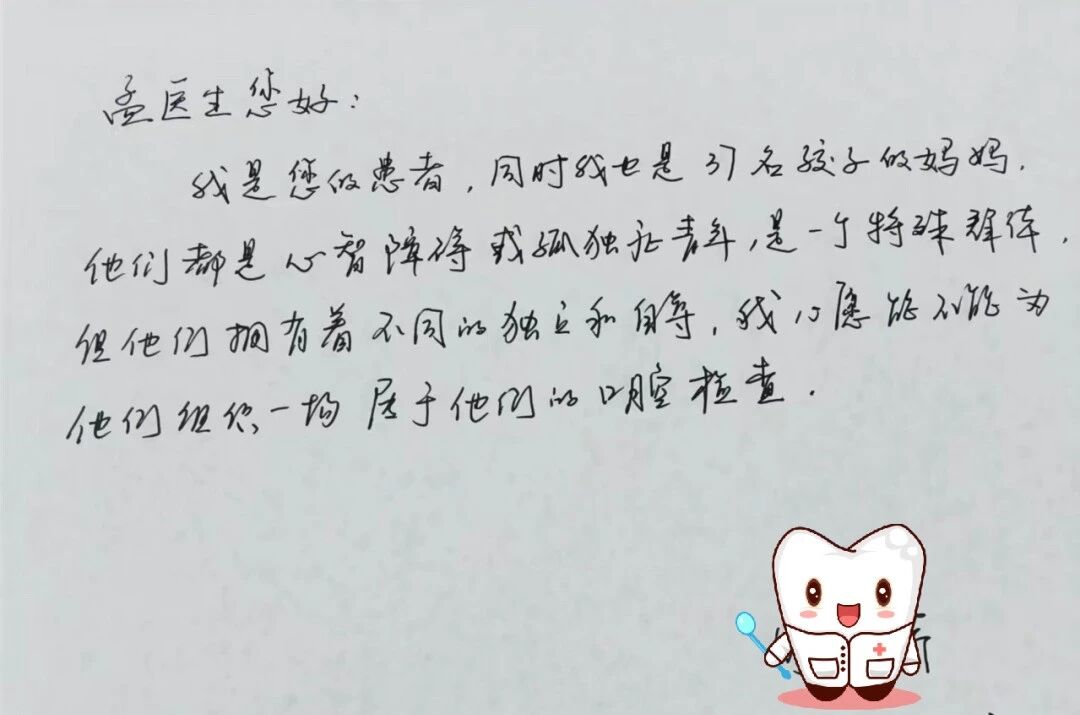 孟医生您好：
我是您的患者，同时我也是37名孩子的妈妈.
他们都是心智障碍或孤独症青年，是一个特殊群体，
但他们拥有着不同的独立和自尊，我心愿能不能为
他们组织一场属于他们的口腔检查.